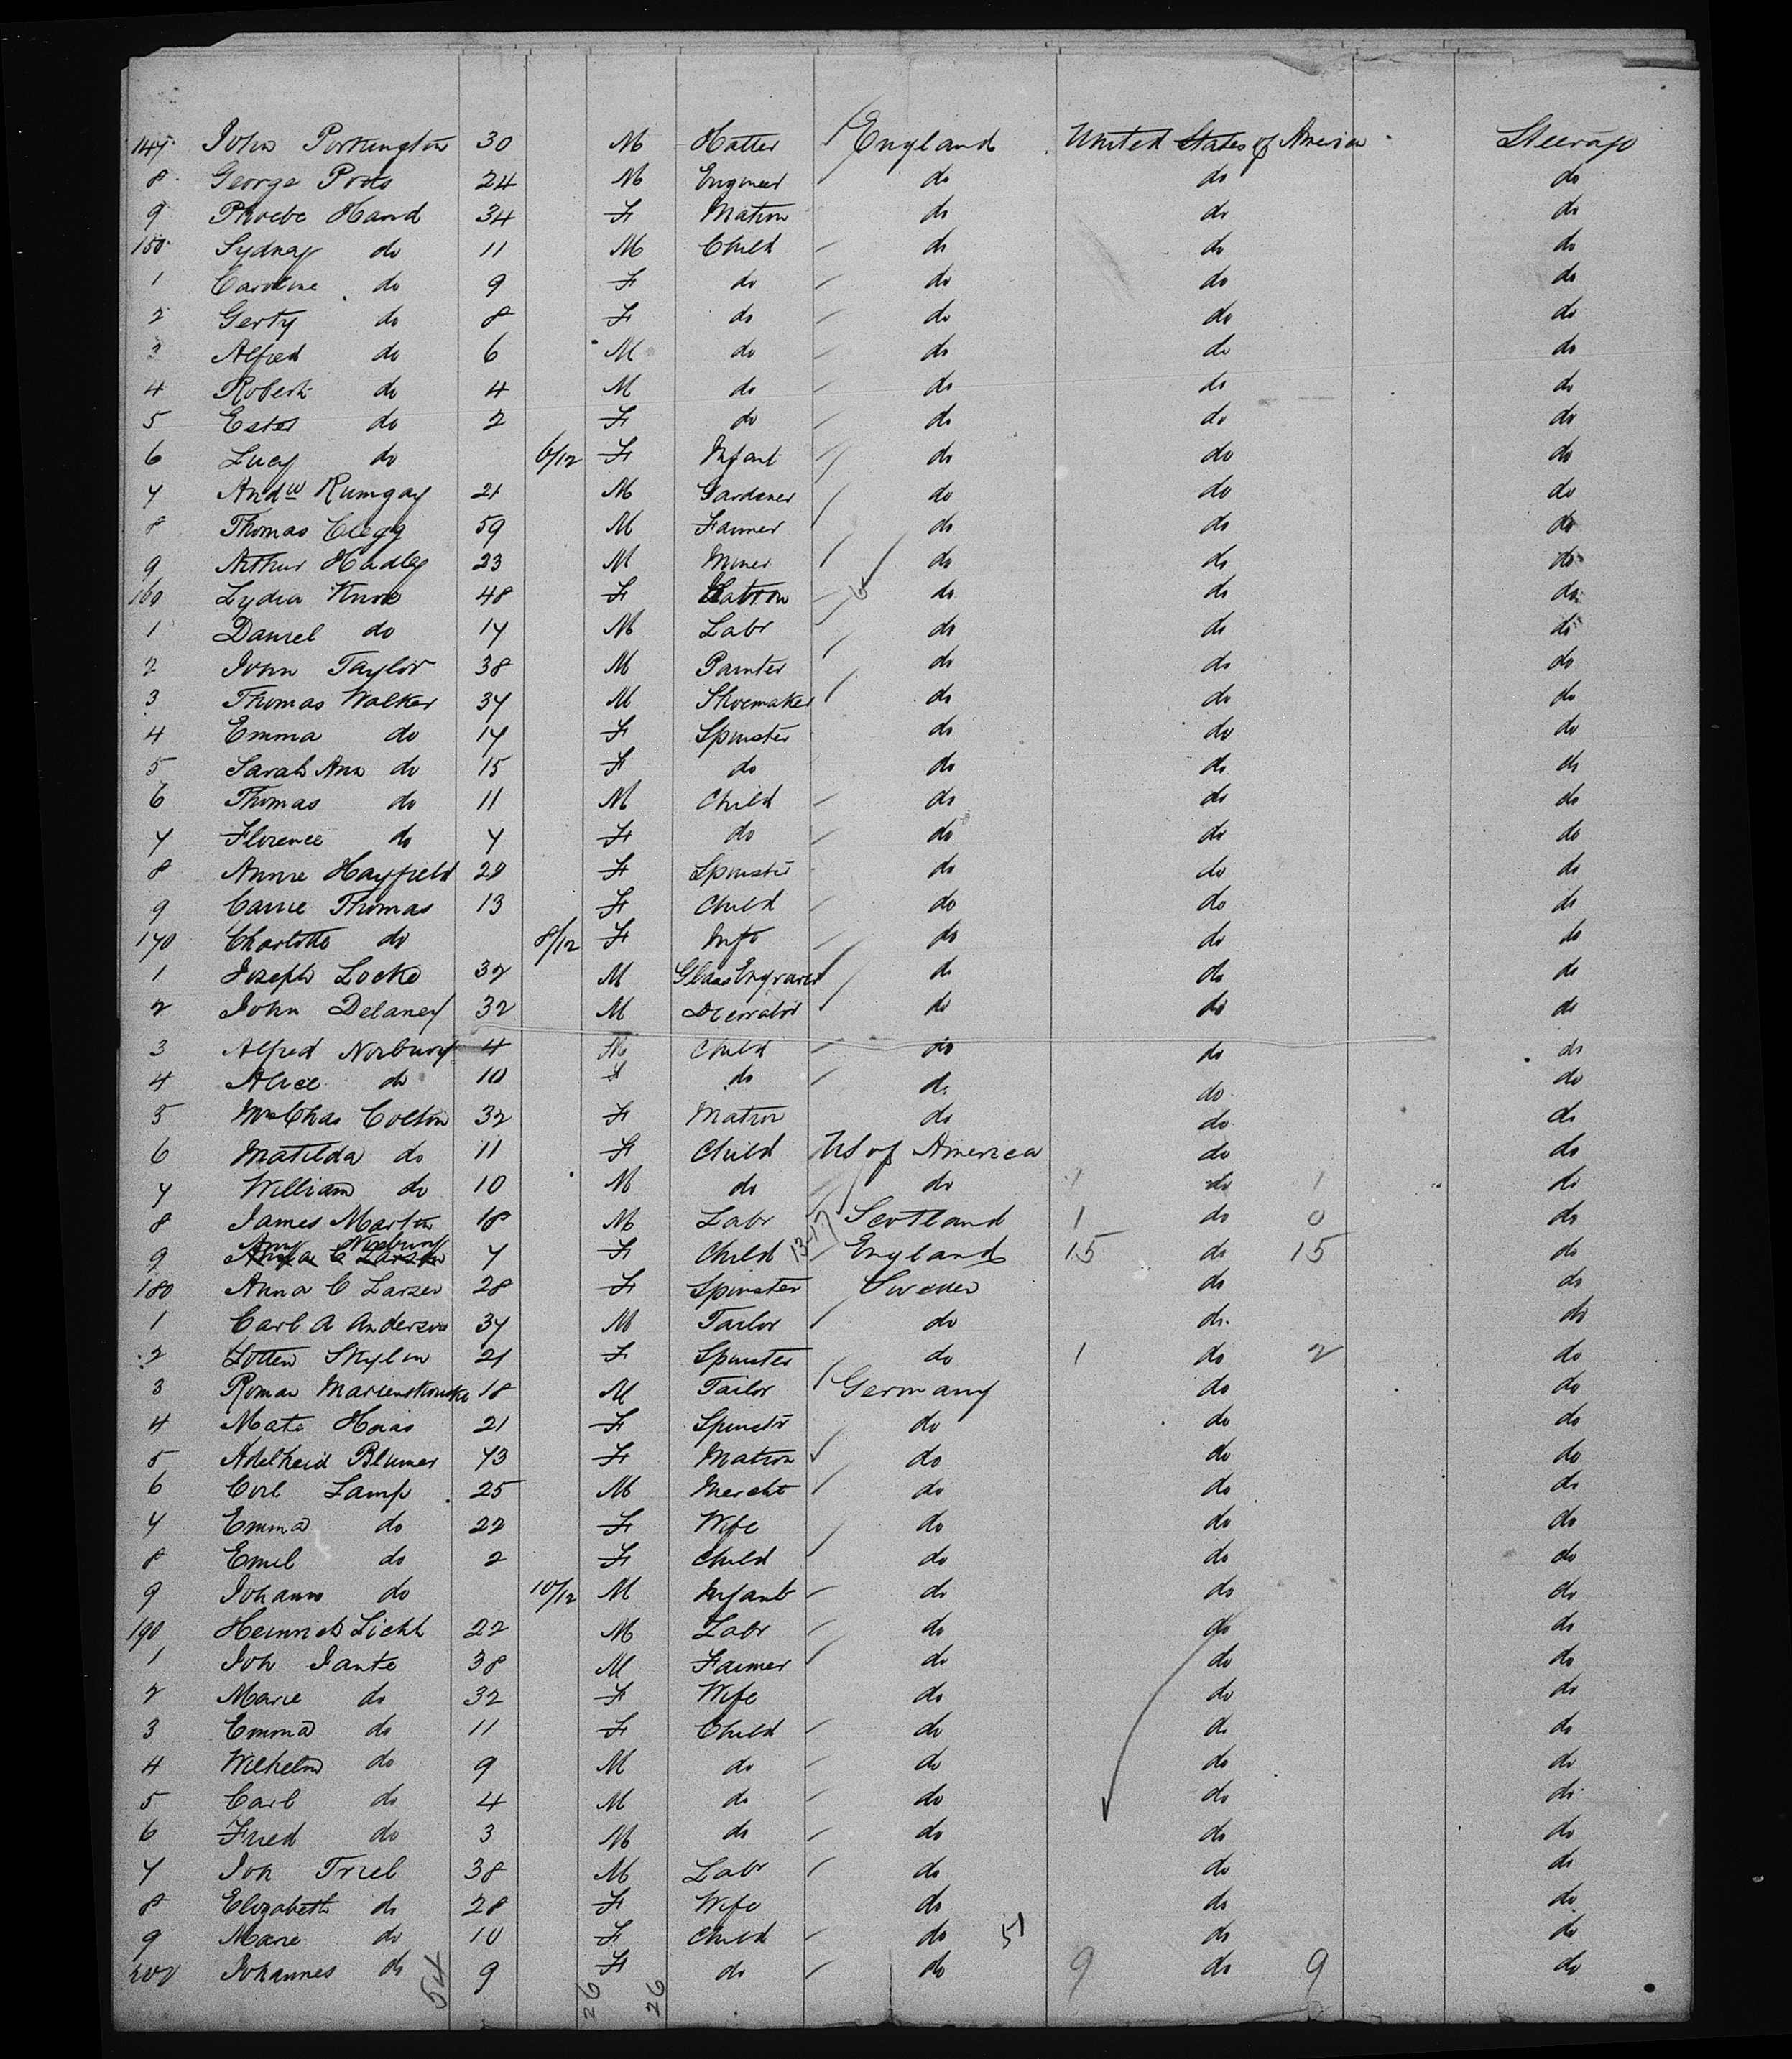 147 John Portington 30 M Hatter England United States of America Steerage
8 George Prots 24 M Engineer do do do
9 Phoebe Hand 34 F Matron do do do
150 Sydney do 11 M Child do do do
1 Caroline do 9 F do do do do
2 Gerty do 8 F do do do do
3 Alfred do 6 M do do do do
4 Robert do 4 M do do do do
5 Ester do 2 F do do do do
6 Lucy do 6/12 F Infant do do do
7 Andw Rumgay 21 M Gardener do do do
8 Thomas Clegg 59 M Farmer do do do
9 Arthur Hadley 23 M Miner do do do
160 Lydia Knox 48 F Matron do do do
1 Daniel do 17 M Labr do do do
2 John Taylor 38 M Painter do do do
3 Thomas Walker 37 M Shoemaker do do do
4 Emma do 17 F Spinster do do do
5 Sarah Ann do 15 F do do do do
6 Thomas do 11 M Child do do do
7 Florence do 7 F do do do do
8 Annie Hayfield 28 F Spinster do do do
9 Carrie Thomas 13 F Child do do do
170 Charlotte do 8/12 F Inft do do do
1 Joseph Locke 32 M Glass Engraver do do do
2 John Delaney 32 M Decorator do do do
3 Alfred Norbury 4 M Child do do do
4 Alice do 10 F do do do do
5 Mrs Chas Colton 32 F Matron do do do
6 Matilda do 11 F Child US of America do do
7 William do 10 M do do 1 do 1 do
8 James Martin 18 M Labr Scotland 1 do 0 do
Amy Norbury
9 Anna C Larsen 7 F Child 13-17 England 15 do 15 do
180 Anna C Larsen 28 F Spinster Sweden do do
1 Carl A Anderson 37 M Tailor do do do
2 Lotten Skylin 21 F Spinster do 1 do 2 do
3 Roman 18 M Tailor Germany do do
4 Mate 21 F Spinstr do do do
5 Adelheid Blumer 73 F Matron do do do
6 Carl Lamp 25 M Mercht do do do
7 Emma do 22 F Wife do do do
8 Emil do 2 F Child do do do
9 Johann do 10/12 M Infant do do do
190 Heinrich Licht 22 M Labr do do do
1 Joh Jante 38 M Farmer do do do
2 Marie do 32 F Wife do do do
3 Emma do 11 F Child do do do
4 Wilhelm do 9 M do do do do
5 Carl do 4 M do do do do
6 Fried do 3 M do do do do
7 Joh Triel 38 M Labr do do do
8 Elizabeth do 28 F Wife do do do
9 Marie do 10 F Child do 51 do do
200 Johannes do 9 F do do 9 do 9 do
54 26 26